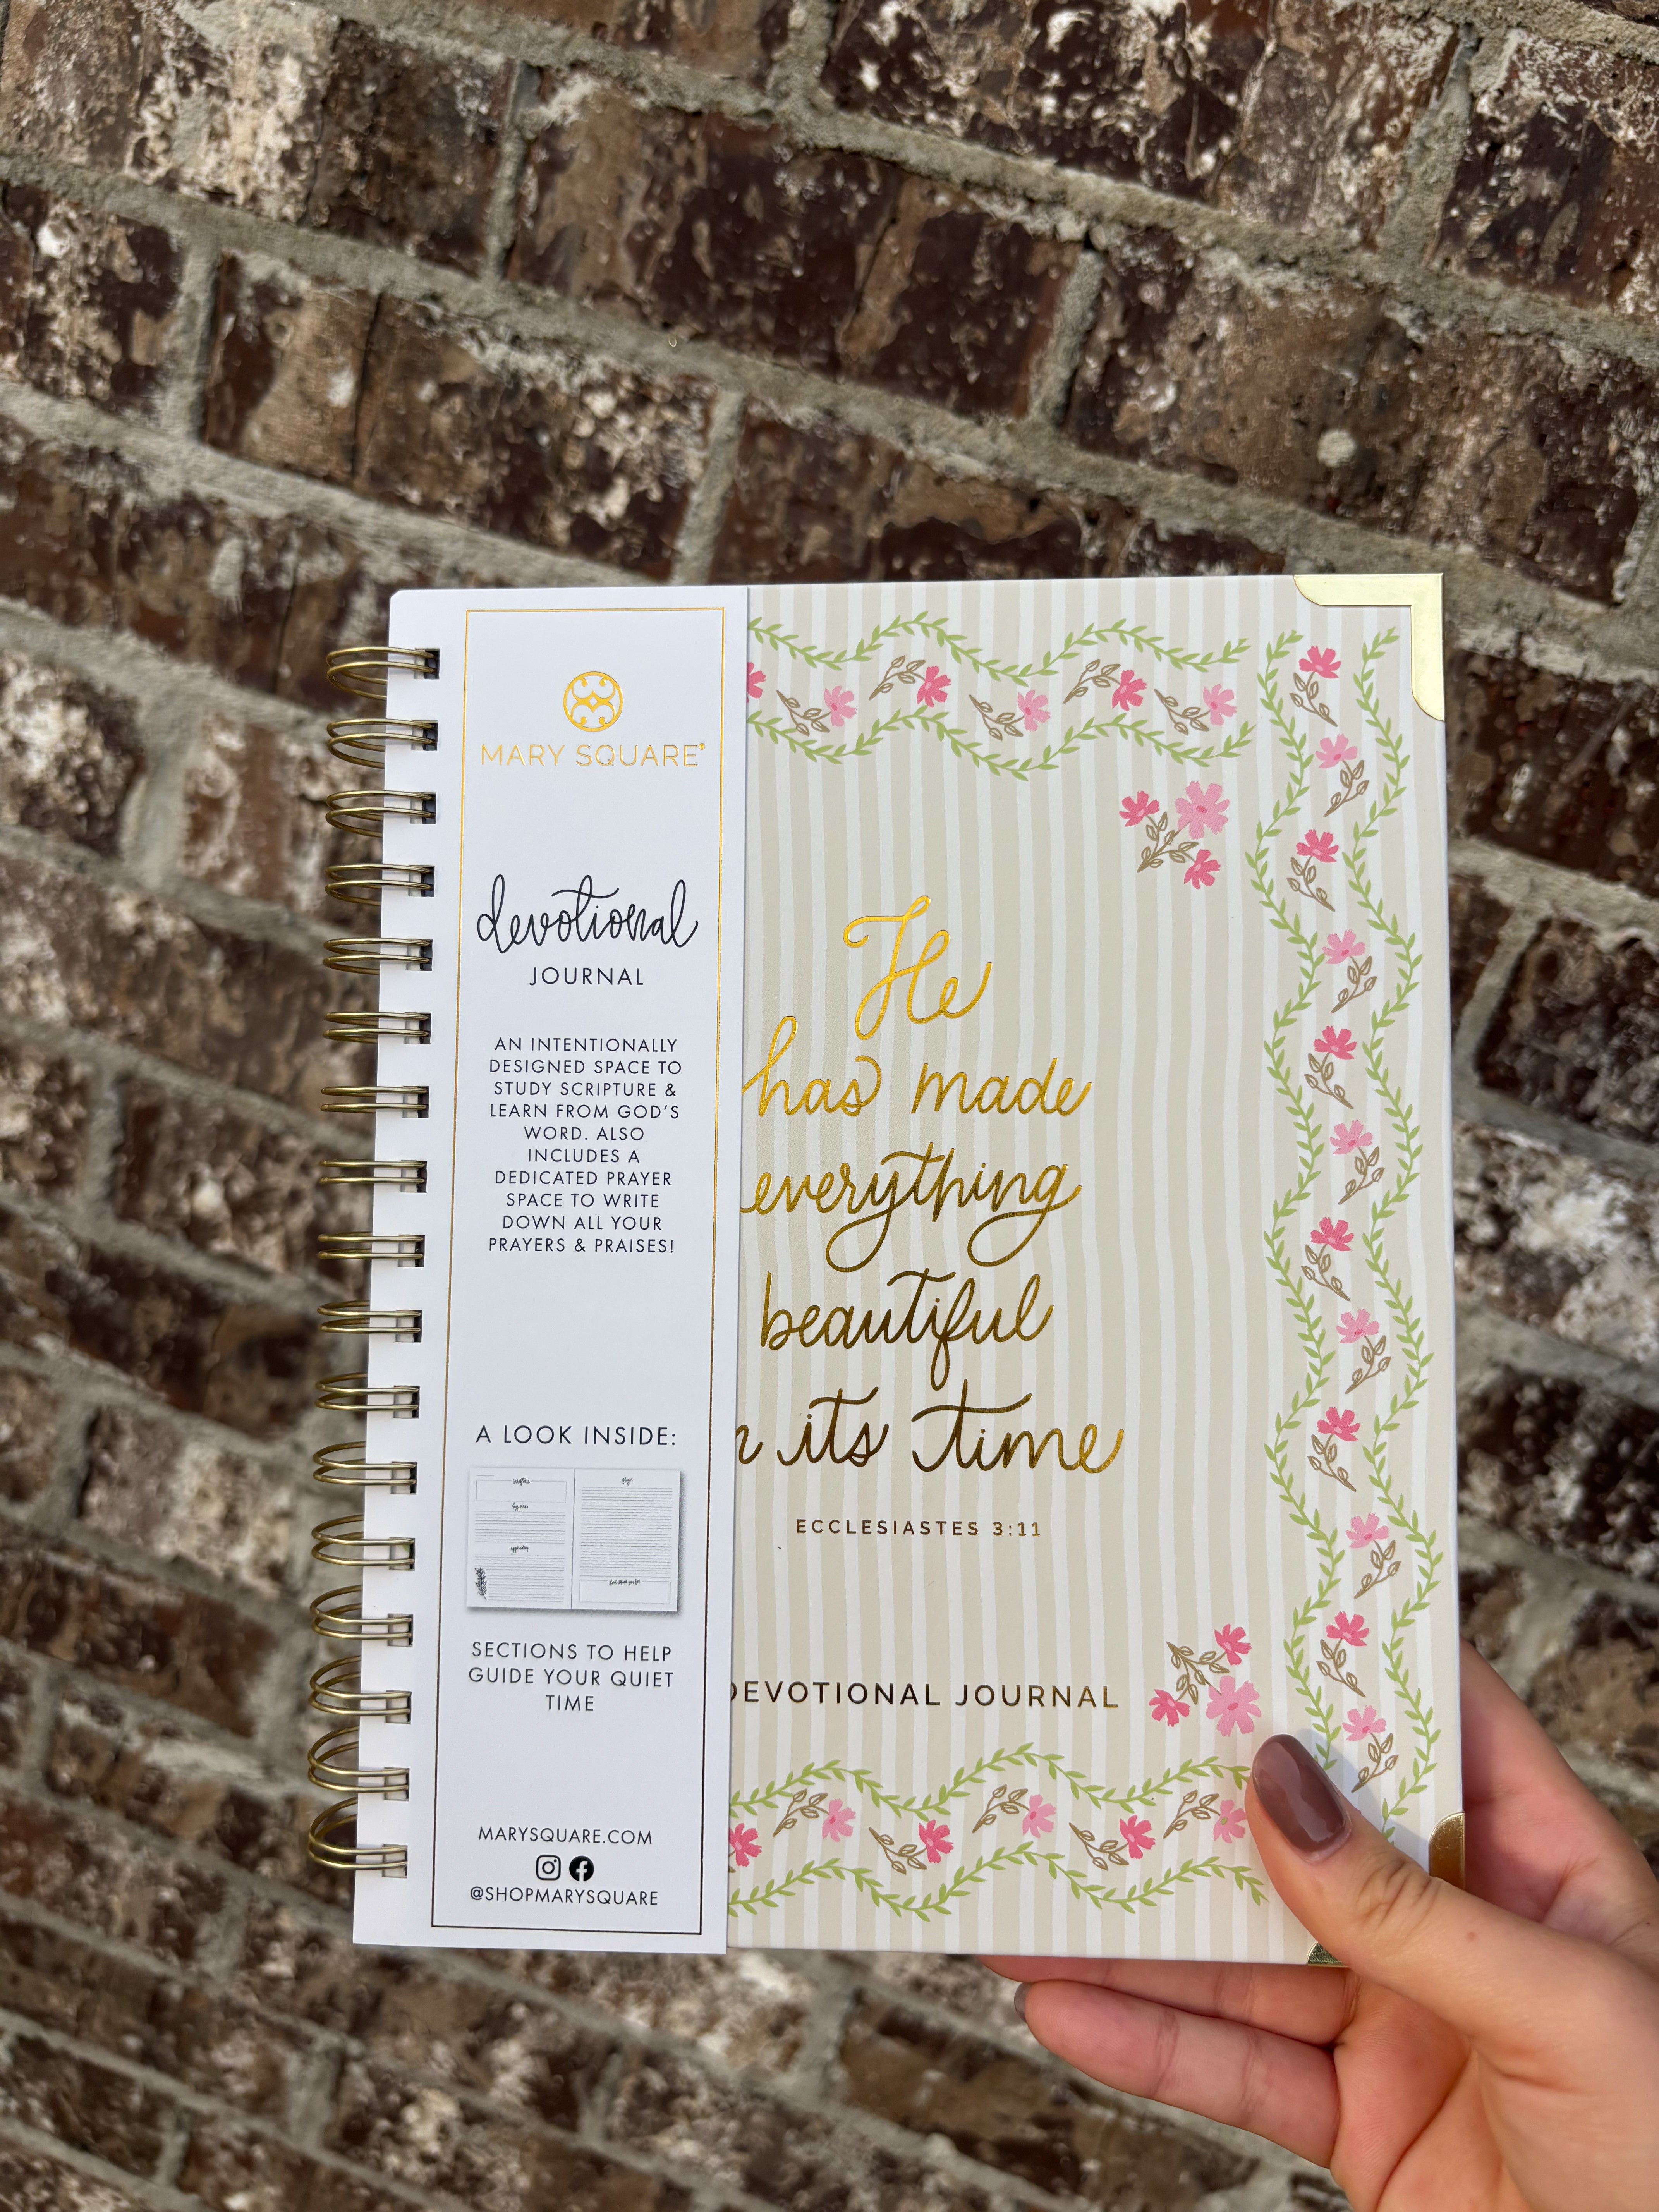 MARY SQUARE®
devotional
JOURNAL
AN INTENTIONALLY
DESIGNED SPACE TO
STUDY SCRIPTURE &
LEARN FROM GOD'S
WORD. ALSO
INCLUDES A
DEDICATED PRAYER
SPACE TO WRITE
DOWN ALL YOUR
PRAYERS & PRAISES!
A LOOK INSIDE:
scripture
prayer
key verse
application
Lord, thank you for
SECTIONS TO HELP
GUIDE YOUR QUIET
TIME
MARYSQUARE.COM
@SHOPMARYSQUARE
He
has made
everything
beautiful
n its time
ECCLESIASTES 3:11
DEVOTIONAL JOURNAL